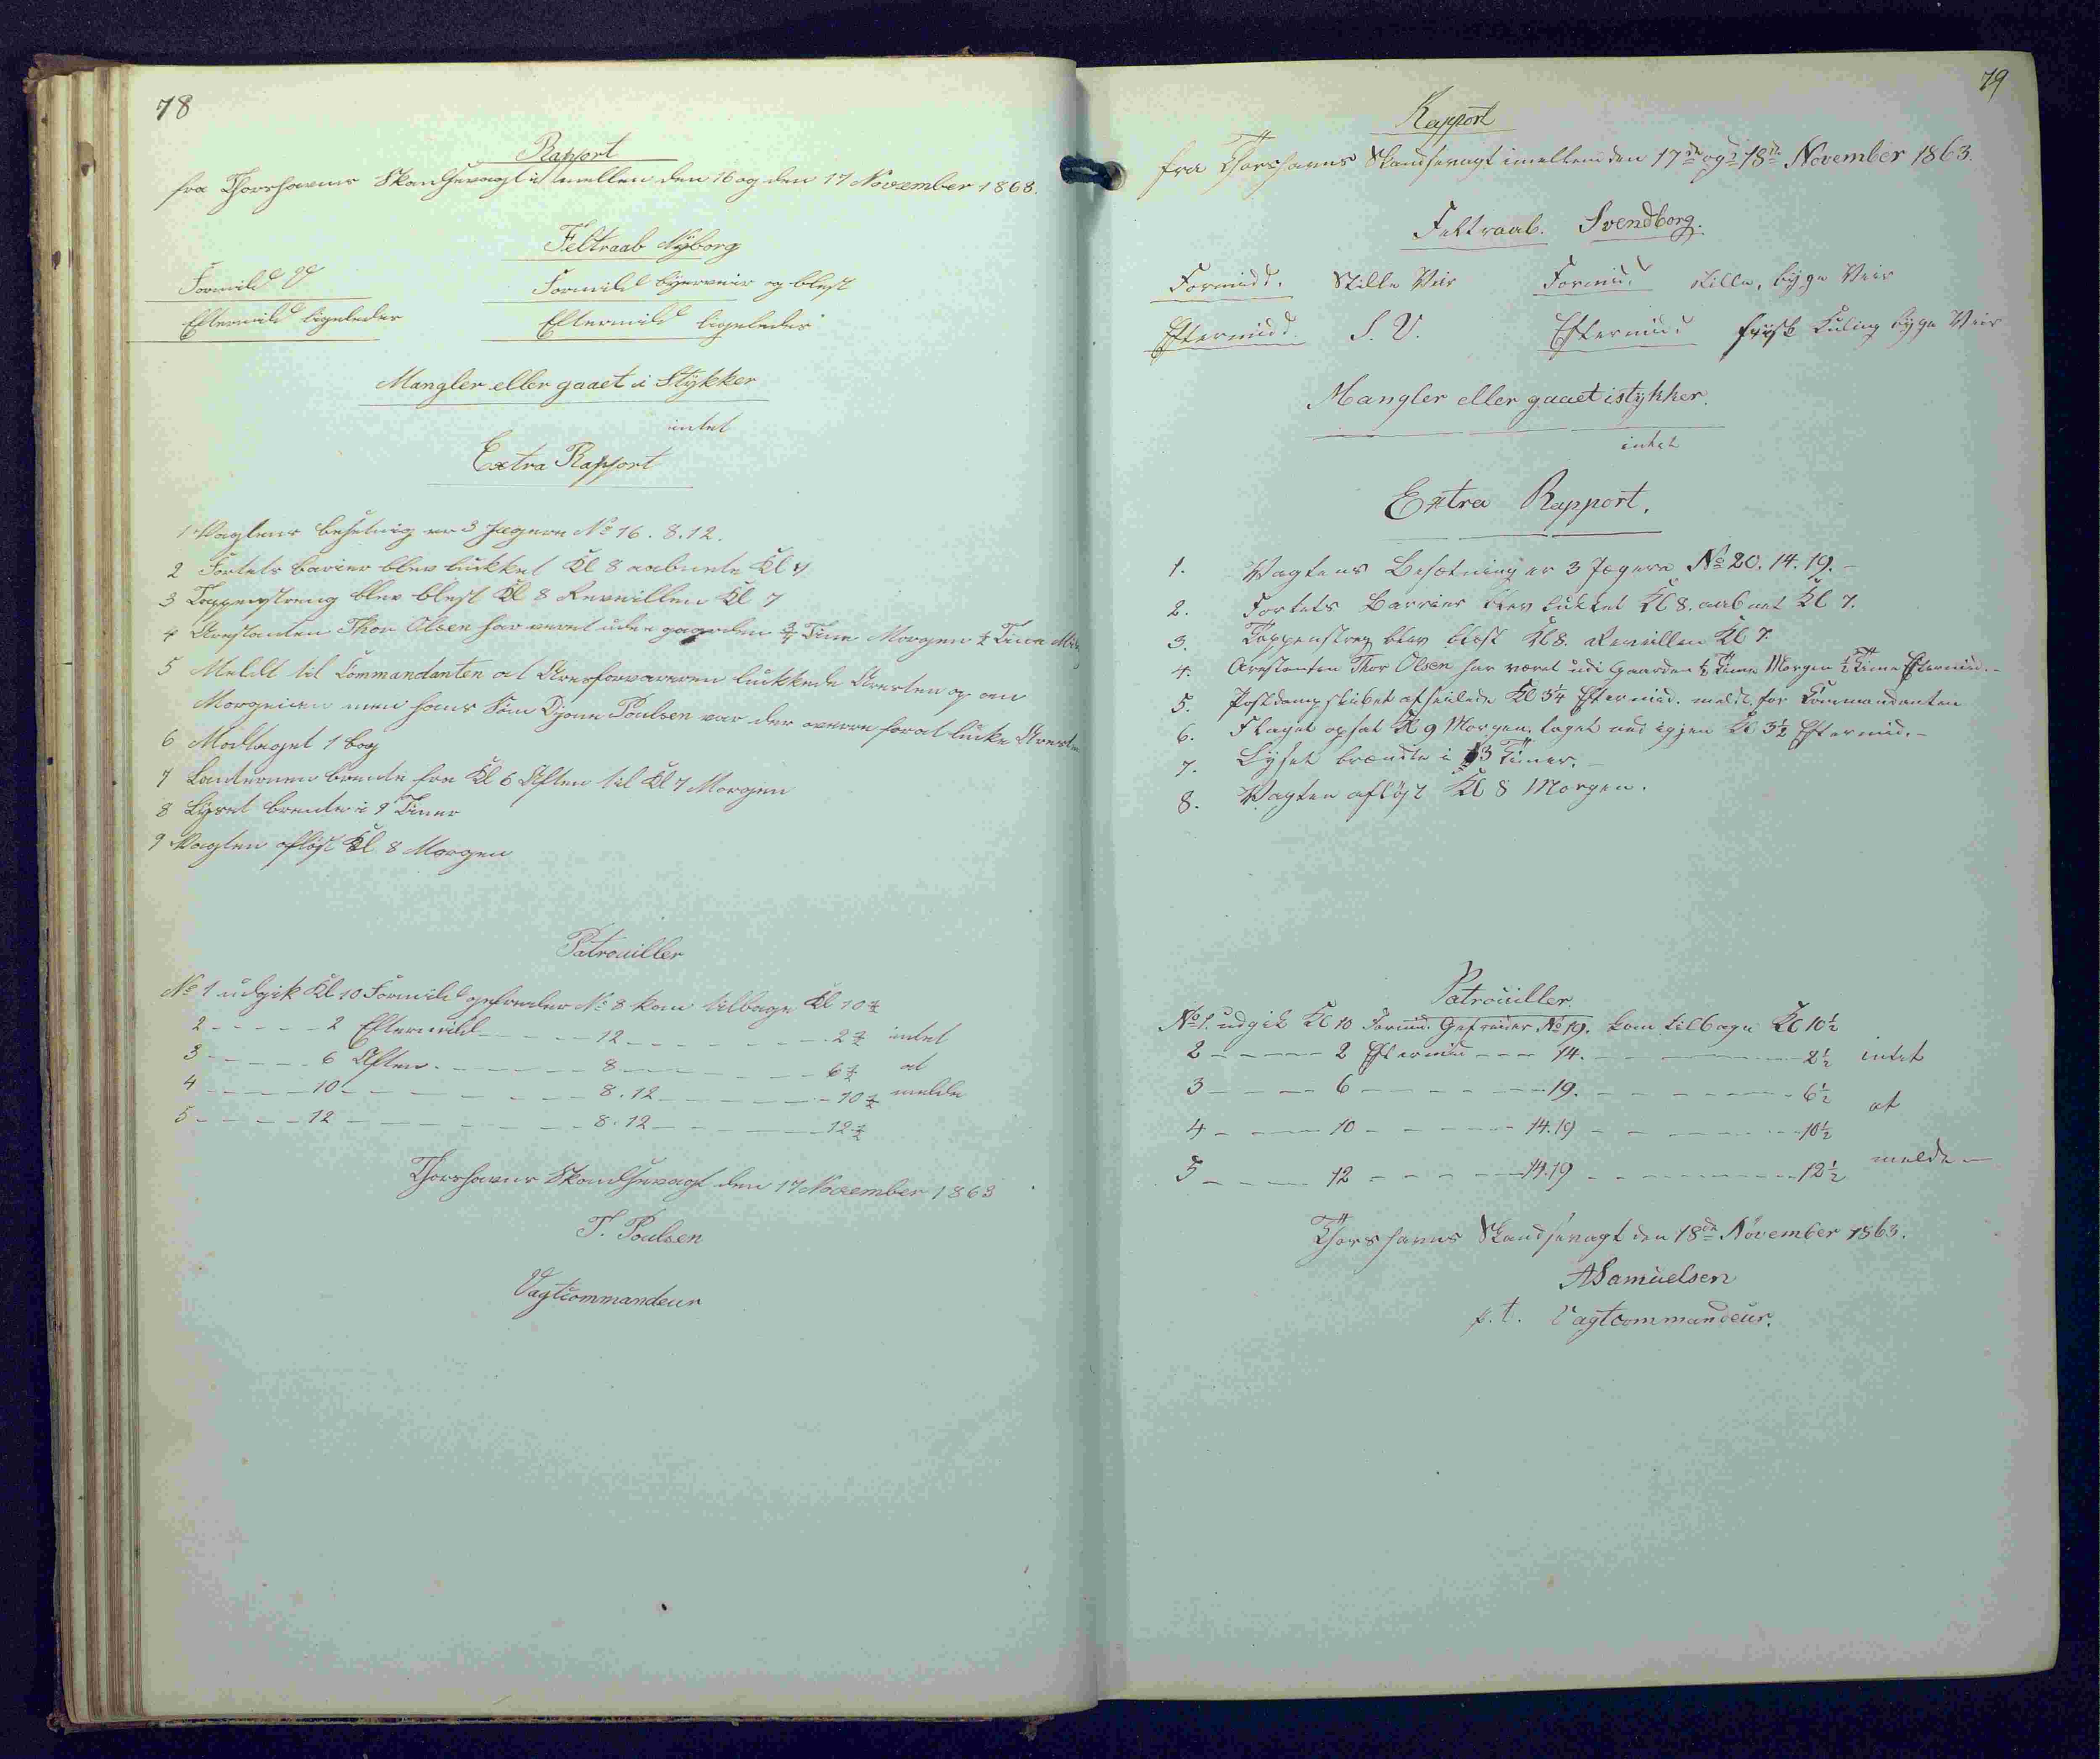 78
Rapport
fra Thorshavns Skandsevagt i mellen den 16 og den 17 November 1863.
Feltraab Nyborg
Formidd V Formidd byerveir og blest
Eftermidd ligeledes Eftermidd ligeledes
Mangler eller gaaet i Stykker
intet
Extra Rapport
1 Vagtens besetnig er 3 Jægere No 16. 8. 12.
2 Fortets barier blev lukket Kl 8 aabnete Kl 7
3 Tappenstreng blev blest Kl 8 Reveillen Kl 7
4 Arestanten Thor Olsen har veret ude i gaarden 3/4 Time Morgen 1/2 Time
5 Meldt til Commandanten at Arresforvareren lukkede Aresten op om
Morgenen men hans Søn Djone Poulsen var der overe forat lucke Aresten
6 Modtaget 1 bog
7 Lanternen brente fra Kl 6 Aften til Kl 7 Morgen
8 Lyset brente i 9 Timer
9 Vagten afløst Kl 8 Morgen
Patrouiller
No 1 udgik Kl 10 Formidd gefreder No 8 kom tilbage Kl 10 1/2
2 - - - - - 2 Eftermidd - - - - 12 - - - - - - - - 2 1/2 intet
3 - - - - - 6 Aften - - - - - - 8 - - - - - - - - 6 1/2 at
4 - - - - - 10 - - - - - - - - 8. 12 - - - - - - - 10 1/2 melde
5 - - - - - 12 - - - - - - - - 8. 12 - - - - - - - 12 1/2
Thorshavns Skandsevagt den 17 November 1863
T. Poulsen
Vagtcommandeur
79
Rapport
fra Thorshavns Skandsevagt imellem den 17de og 18de November 1863.
Feltraab. Svendborg.
Formidd. Stille Veir Formid. stille, byge Veir
Eftermidd. S. V. Eftermidd frysk Kuling byge Veir
Mangler eller gaaet istykker.
intet
Extra Rapport.
1. Vagtens Besætning er 3 Jægere No 20. 14. 19. -
2. Fortets Barrier blev lukket Kl 8. aabnet Kl 7.
3. Tappenstreg blev blest Kl 8. Reveillen Kl 7.
4. Arestanten Thor Olsen har været udi Gaarden 1/2 Time Morgen 1/2 Time Eftermid. -
5. Postdampskibet afseilede Kl 3 1/4 Eftermid. meldt for Commandanten
6. Flaget opsat Kl 9 Morgen, taget ned igjen Kl 3 1/2 Eftermid. -
7. Lyset brændte i 13 Timer. -
8. Vagten afløst Kl 8 Morgen.
Patrouiller.
No 1. udgik Kl 10 Formid. Gefreider No 19. kom tilbage Kl 10 1/2
2 - - - - - 2 Eftermid - - - 14. - - - - - - - - 2 1/2 intet
3 - - - - - 6 - - - - - - - 19. - - - - - - - - 6 1/2 at
4 - - - - - 10 - - - - - - 14. 19 - - - - - - - 10 1/2
5 - - - - - 12 - - - - - - 14. 19 - - - - - - - 12 1/2 melde -
Thorshavns Skandsevagt den 18de November 1863.
A Samuelsen
p. t. Vagtcommandeur.